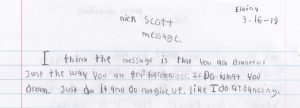 Elaina
nick Scott 3-16-18
message.
I think the message is that you are Beautiful
Just the way you are try to Do what you
dream. Just do it and do not give up. like I do at dancing.